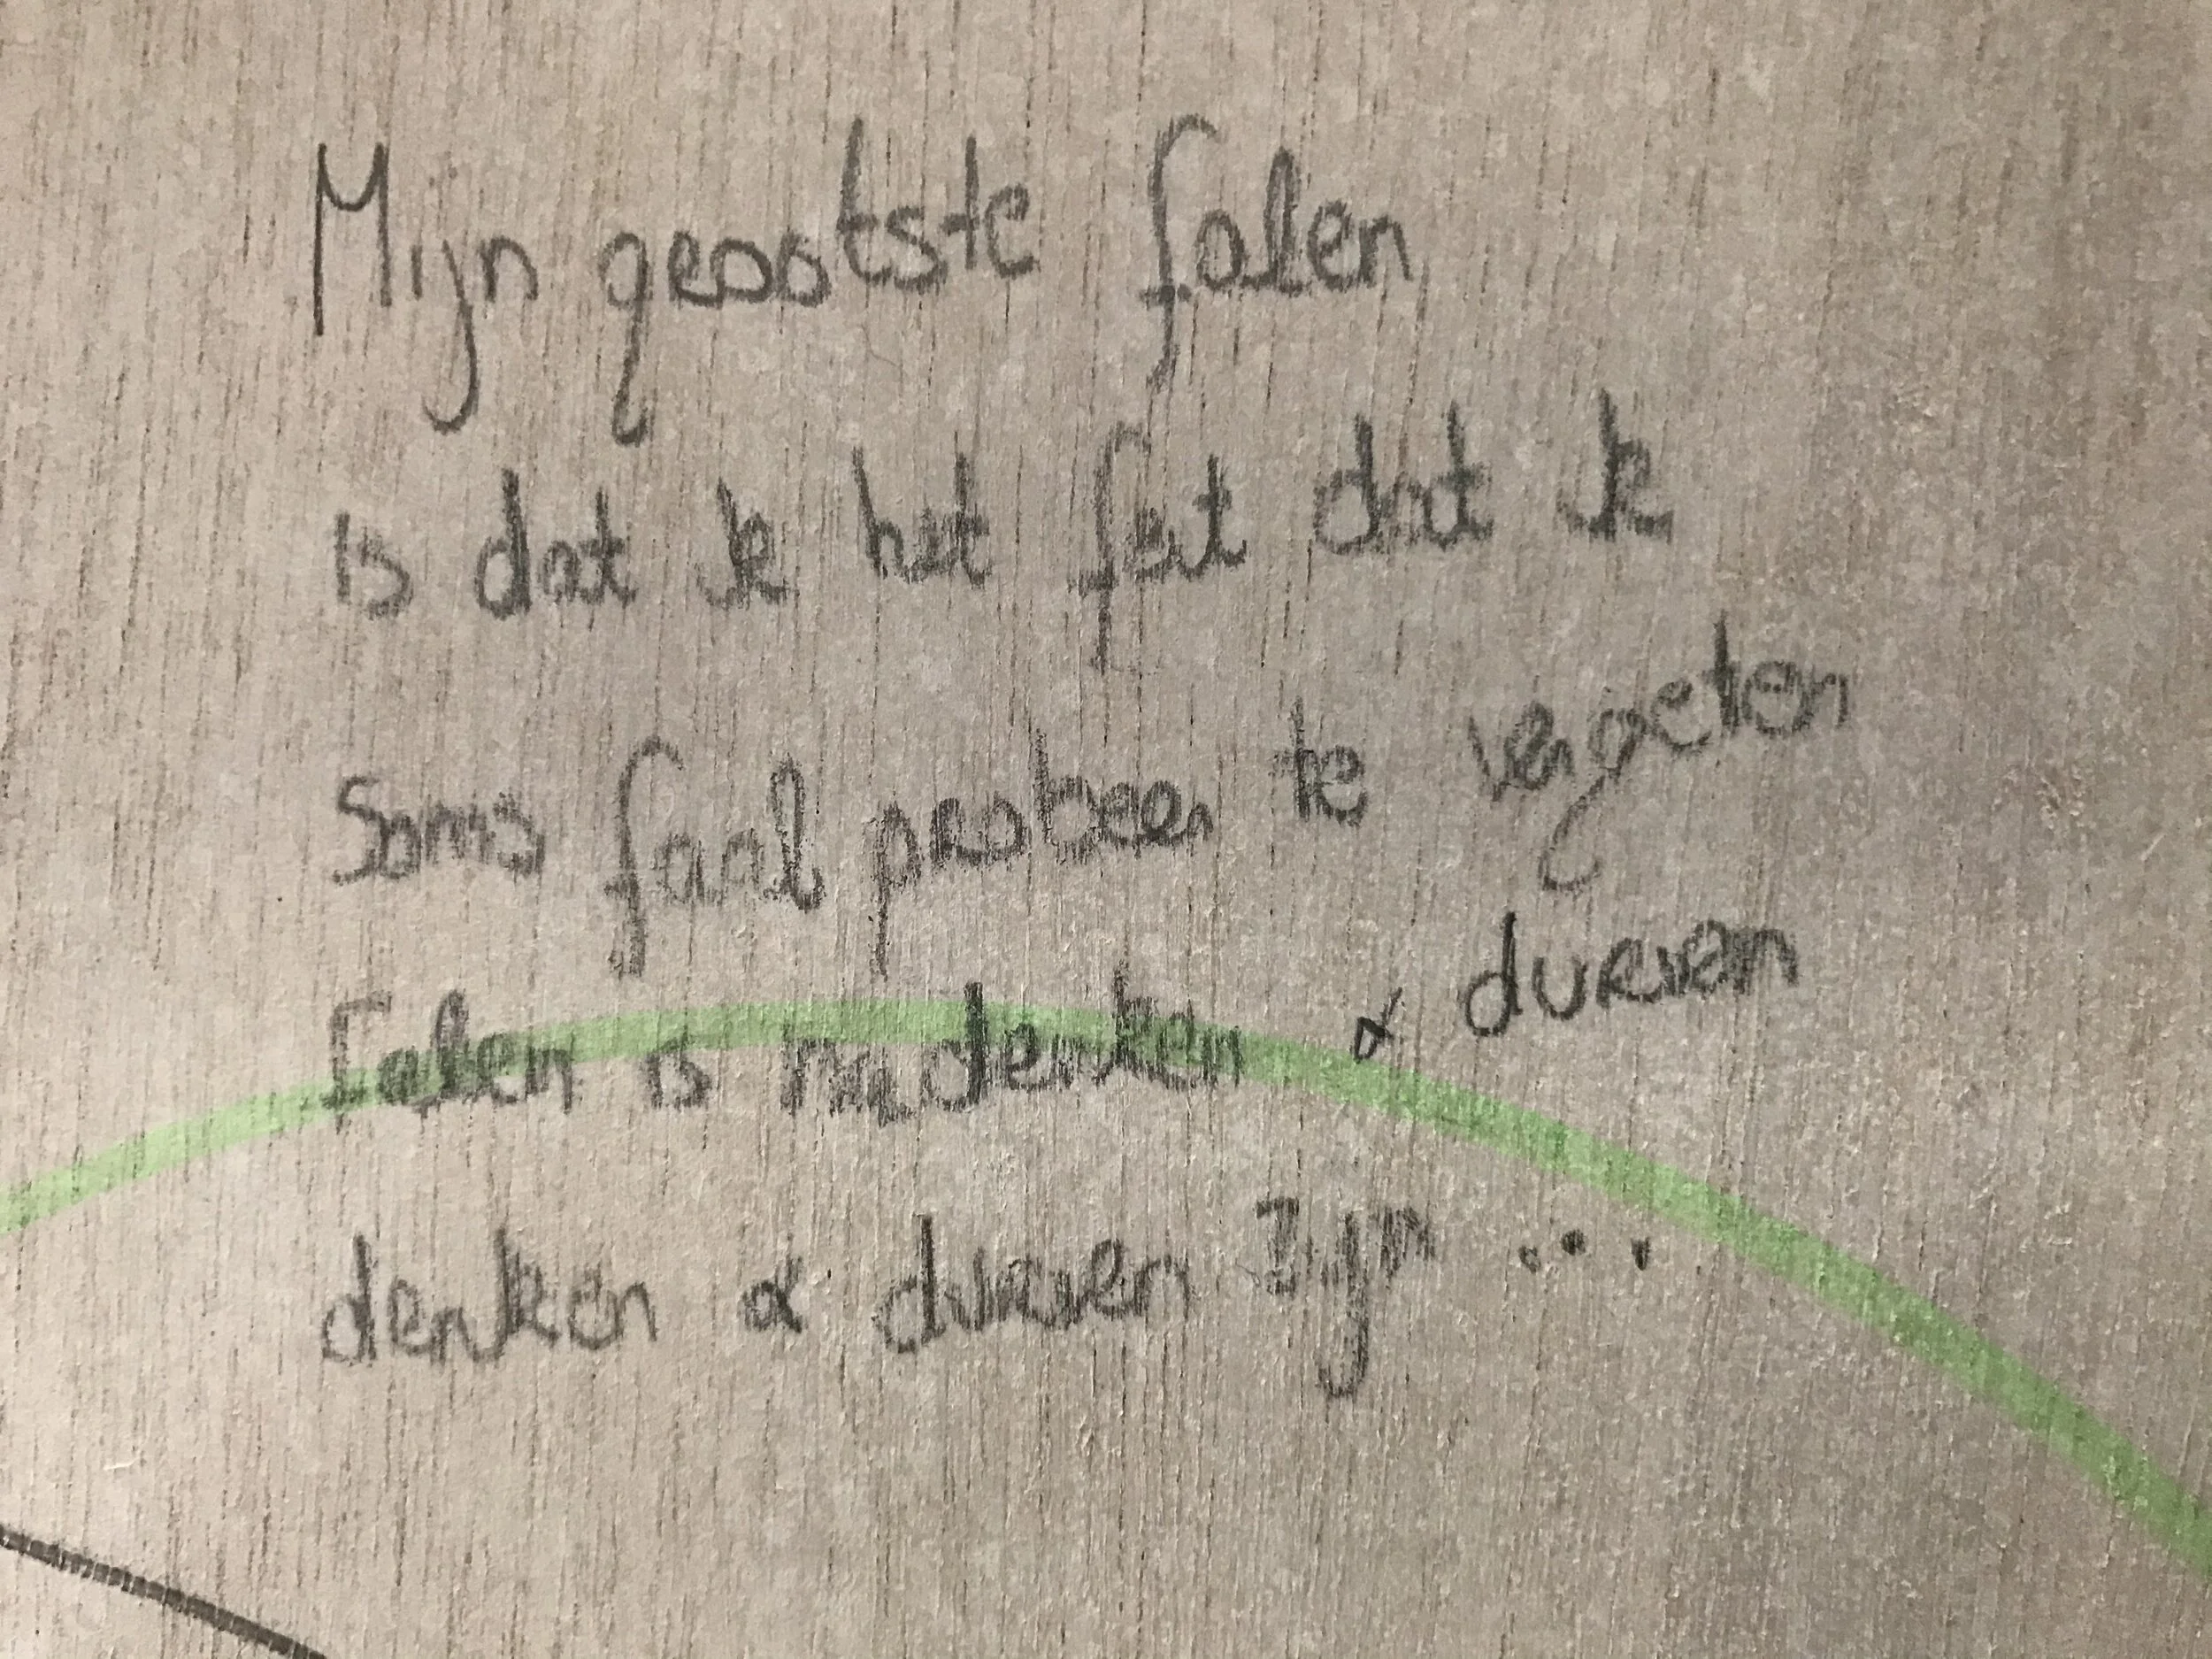 Mijn grootste falen
is dat ik het feit dat ik
soms faal probeer te vergeten
Falen is nadenken & durven
denken & durven zijn ...